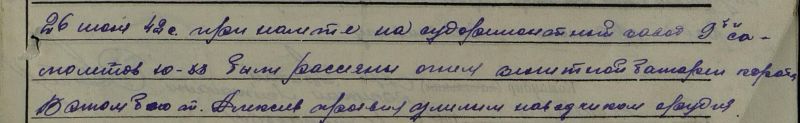 26 июня 42г. при налете на судоремонатный завод 9ти са-
молетов ю-88 были рассеяны огнем зенитной батареи корабл
В этом бою т. Алексеев проявил умелым наводчиком орудия.